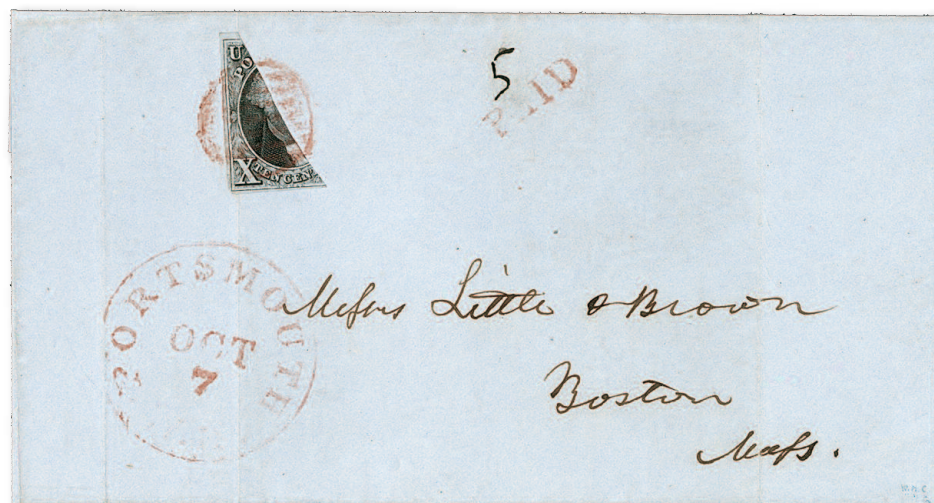 U
PO
X
TEN CEN
5
PAID
PORTSMOUTH
OCT
7
Messrs Little & Brown
Boston
Mass.